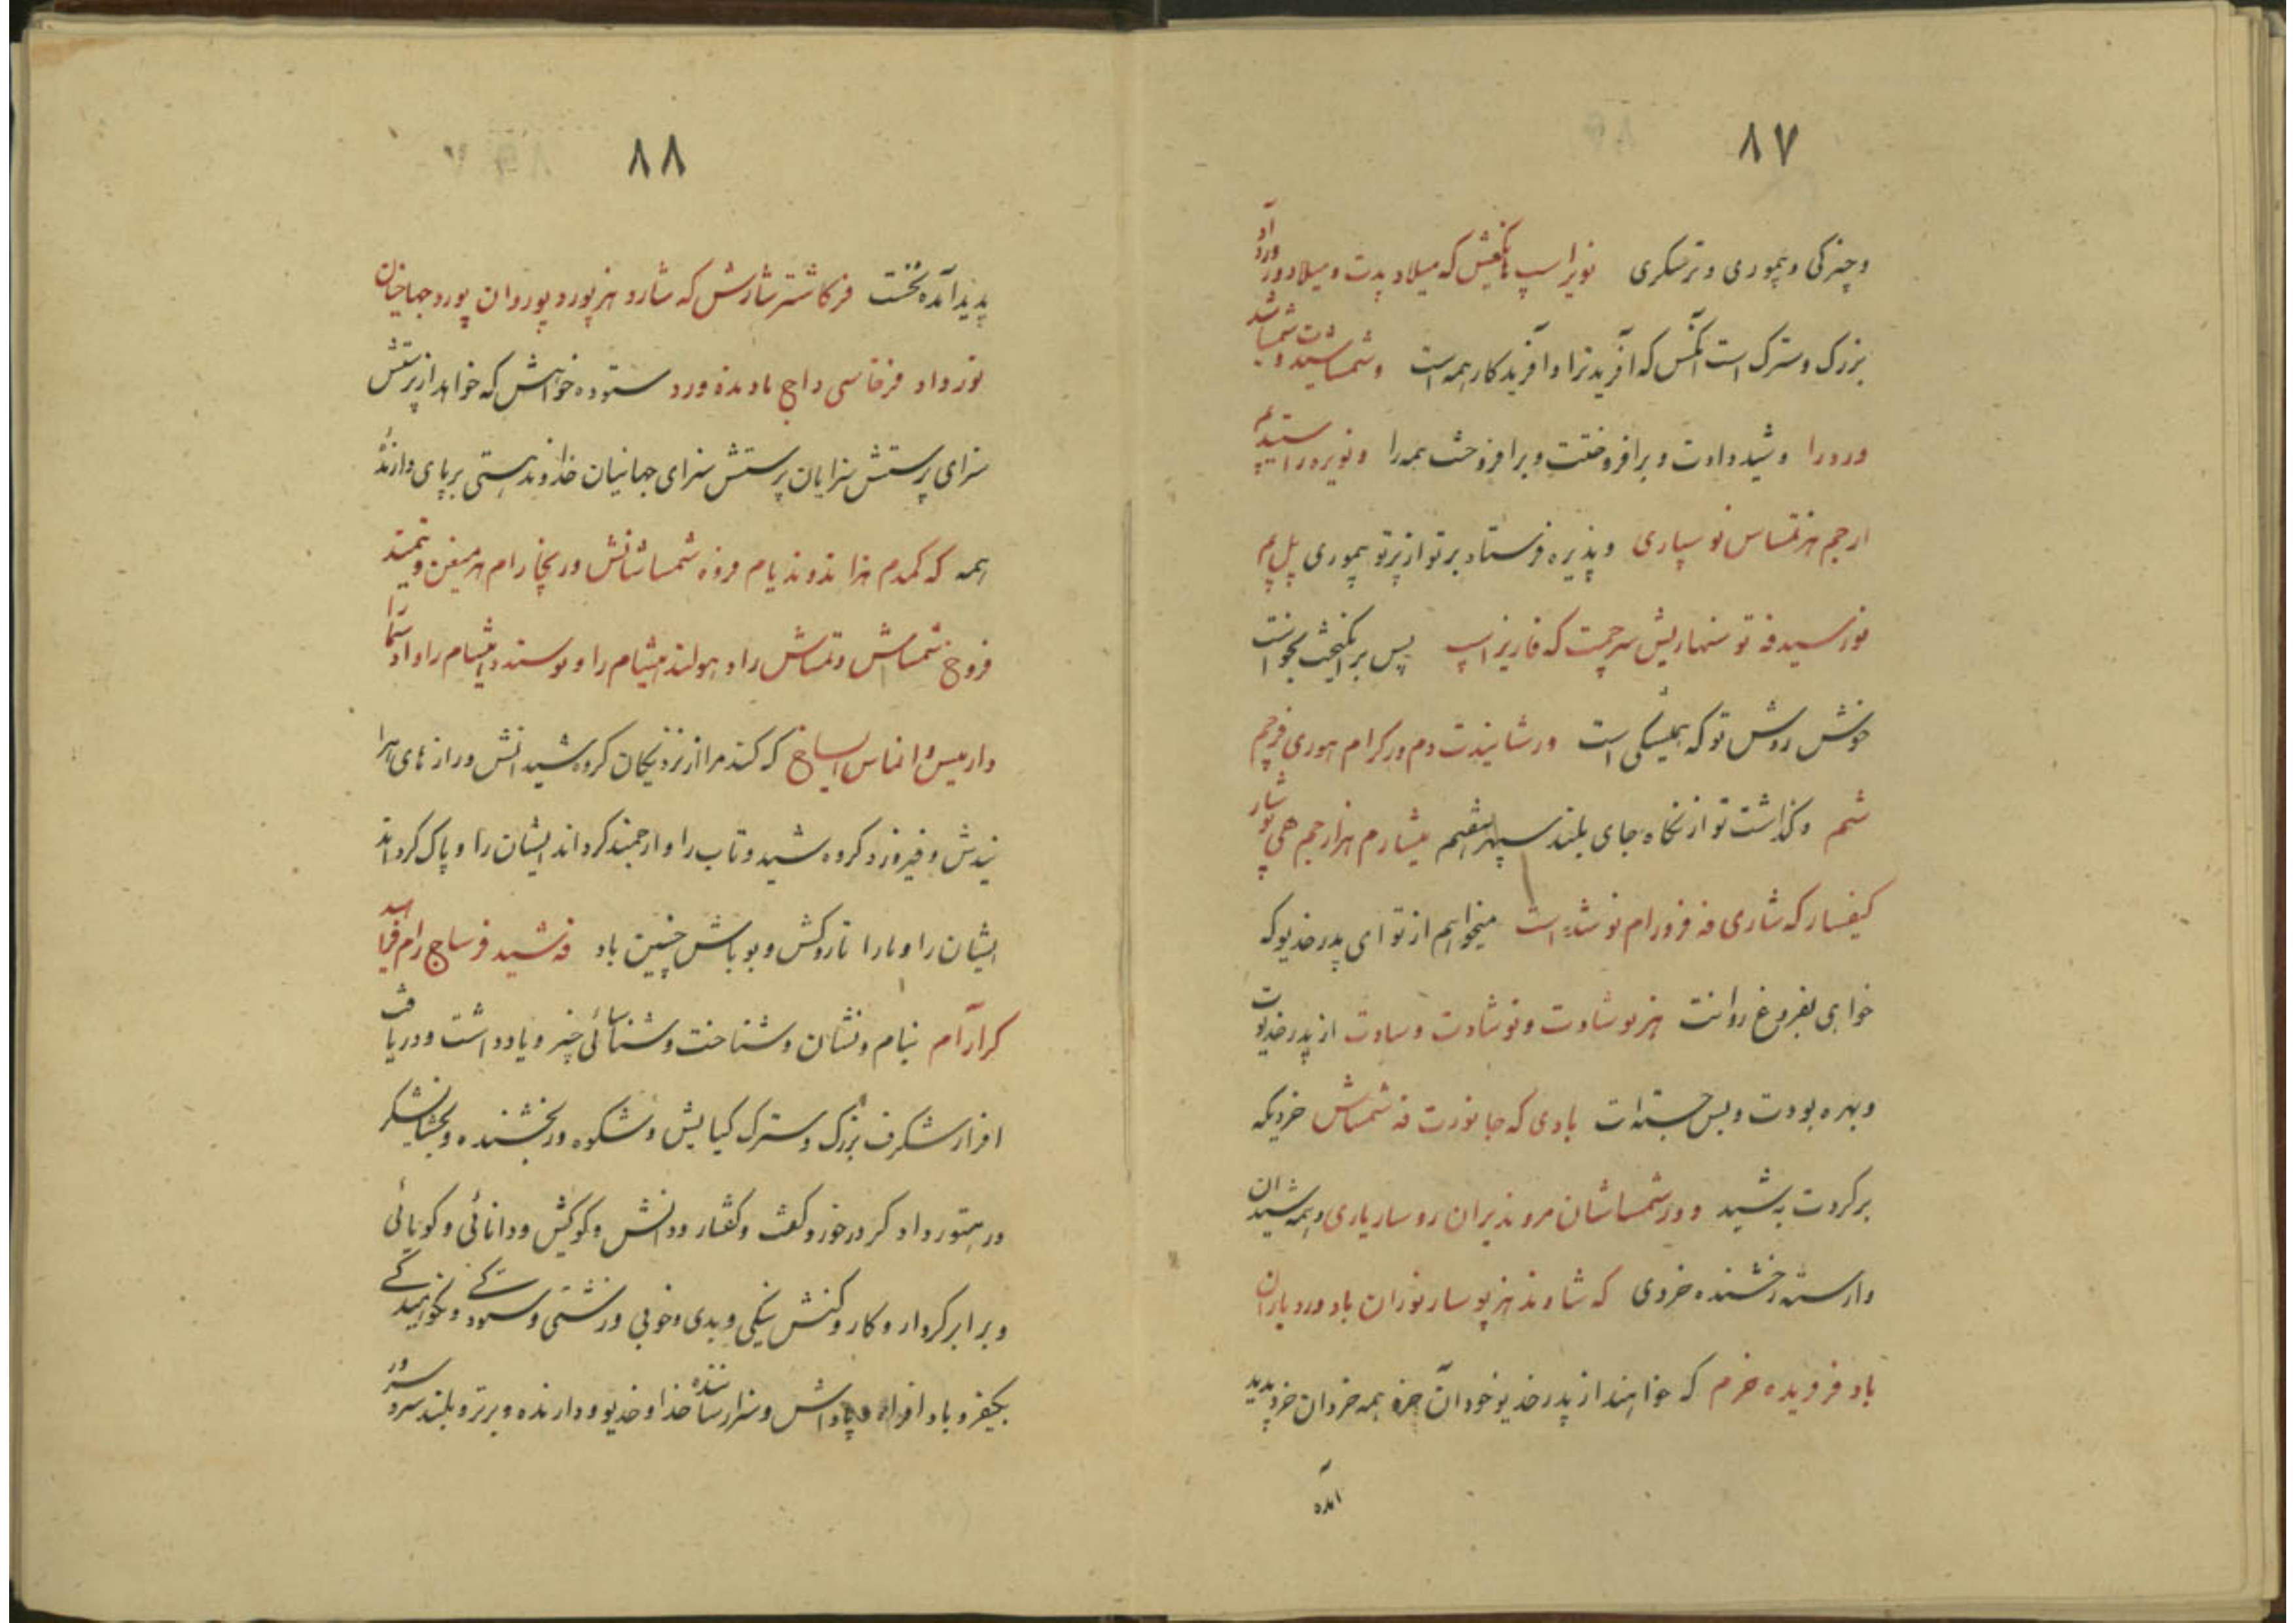 ۸۷
و چیرگی و پیموری و ترسکری نویراسپ که میلاد پدت و میلاد ورد
بزرگ و سترک است آنکس که آفرید ترا و آفریدکار همه است و شمساشیدت و شمساشید
ورد را و شید دادت و برافروختت و برافروخت همه را و نویره را
ارجم هز تمساس نو سپاری و پذیره فرستاد بر تو از پرتو پیموری پل پم
نورسیده فه تو سمارلیش سرجمت که فاریز اسپ پس برانکیخت بخواست
خوش روش تو که همیشکی است ورشانیدت دم ور کرام هوری فرجم
شم وگذاشت تو از نگاه جای بلند سپهر هفتم میشارم هزارجم هی
کیفسار که شاری فه فرورام نو شد است میخواهم از تو ای پدر خدیو که
خواهی بفروغ روانت هز نوشادت و نوشادت و سادت از پدر خدیوت
و بهره بودت و بس جسته ات بادی که جا نورت فه شمساش خردیکه
برکردت به شید و ور شمساشان مروندیران روساریاری و همه شیدان
وارسته رخشنده خردی که شاوند هز پوسار نوران باد ورد یاران
باد فرویده خرم که خواهند از پدر خدیو خود آن خرد همه خردان خرد پدید
آمده
۸۸
پدید آمده نخست فرکاشتر شارش که شارد هز پورد پوردان پورد جهاخان
نورداد فرخاسی داج ماد بدفه ورد ستوده خواهش که خواهد از پرستش
سزای پرستش سزایان پرستش سزای جهانیان خداوند هستی بر پای دارنده
همه که کمدم هزا ندوندیام فروزه شمساشانش ور بخارام هرمیغن و تمید
فروخ شمساش و تمساش را و هولند هیشام را و نوسند و هیشام را و اد شما
دارمیس و انماس اسیاخ که کند مرا از نزدیکان گروه شیدانش و رازهای هرا
نیدش و فیروزد گروه شید و تاب را و ارجمند کرداند ایشان را و پاک کرداند
ایشان را و مارا تا روکش و بو باش چنین باد فه شید فرساج رام
کرارآم بنام و نشان و شناخت و شناسائی چیز و یادداشت و دریافت
افراز شکرف بزرگ و سترک کیایش و شکوه ور بخشنده و بخشایشکر
ور همتور داد کر درخور و گفت و گفتار و دانش و کوکیش و دانائی و گویائی
و برابر کردار و کار و کنش نیکی و بدی و خوبی و زشتی و ستودگی و نکوهیدگی
بکیفر و باد افراه و پاداش و سزا رساننده خدا و خدیو و دارنده و برتر و بلند سرور